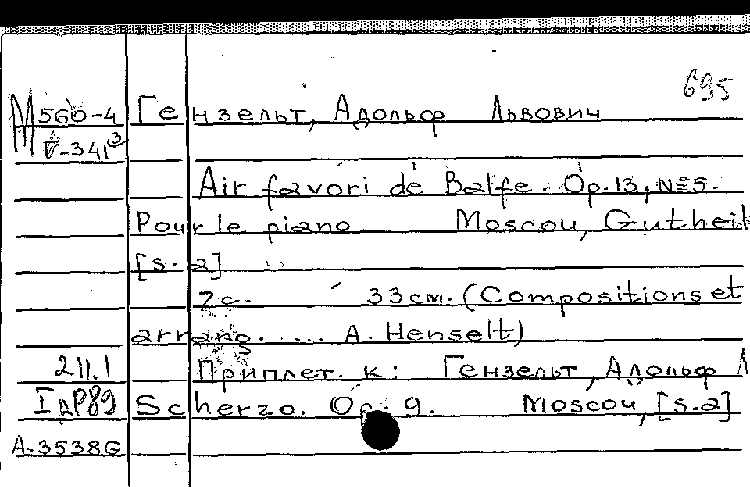 695
М 560-4 Гензельт, Адольф Львович
V-341³
Air favori de Balfe. Op. 13, №5.
Pour le piano Moscou, Gutheil
[s.a]
7с. 33см. (Compositions et
arrang..... A. Henselt)
211.1 Приплет. к: Гензельт, Адольф Л
Scherzo. Op. 9. Moscou, [s.a]
A-3538G